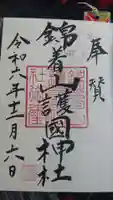 奉賛
錦着山護國神社
令和六年十二月六日